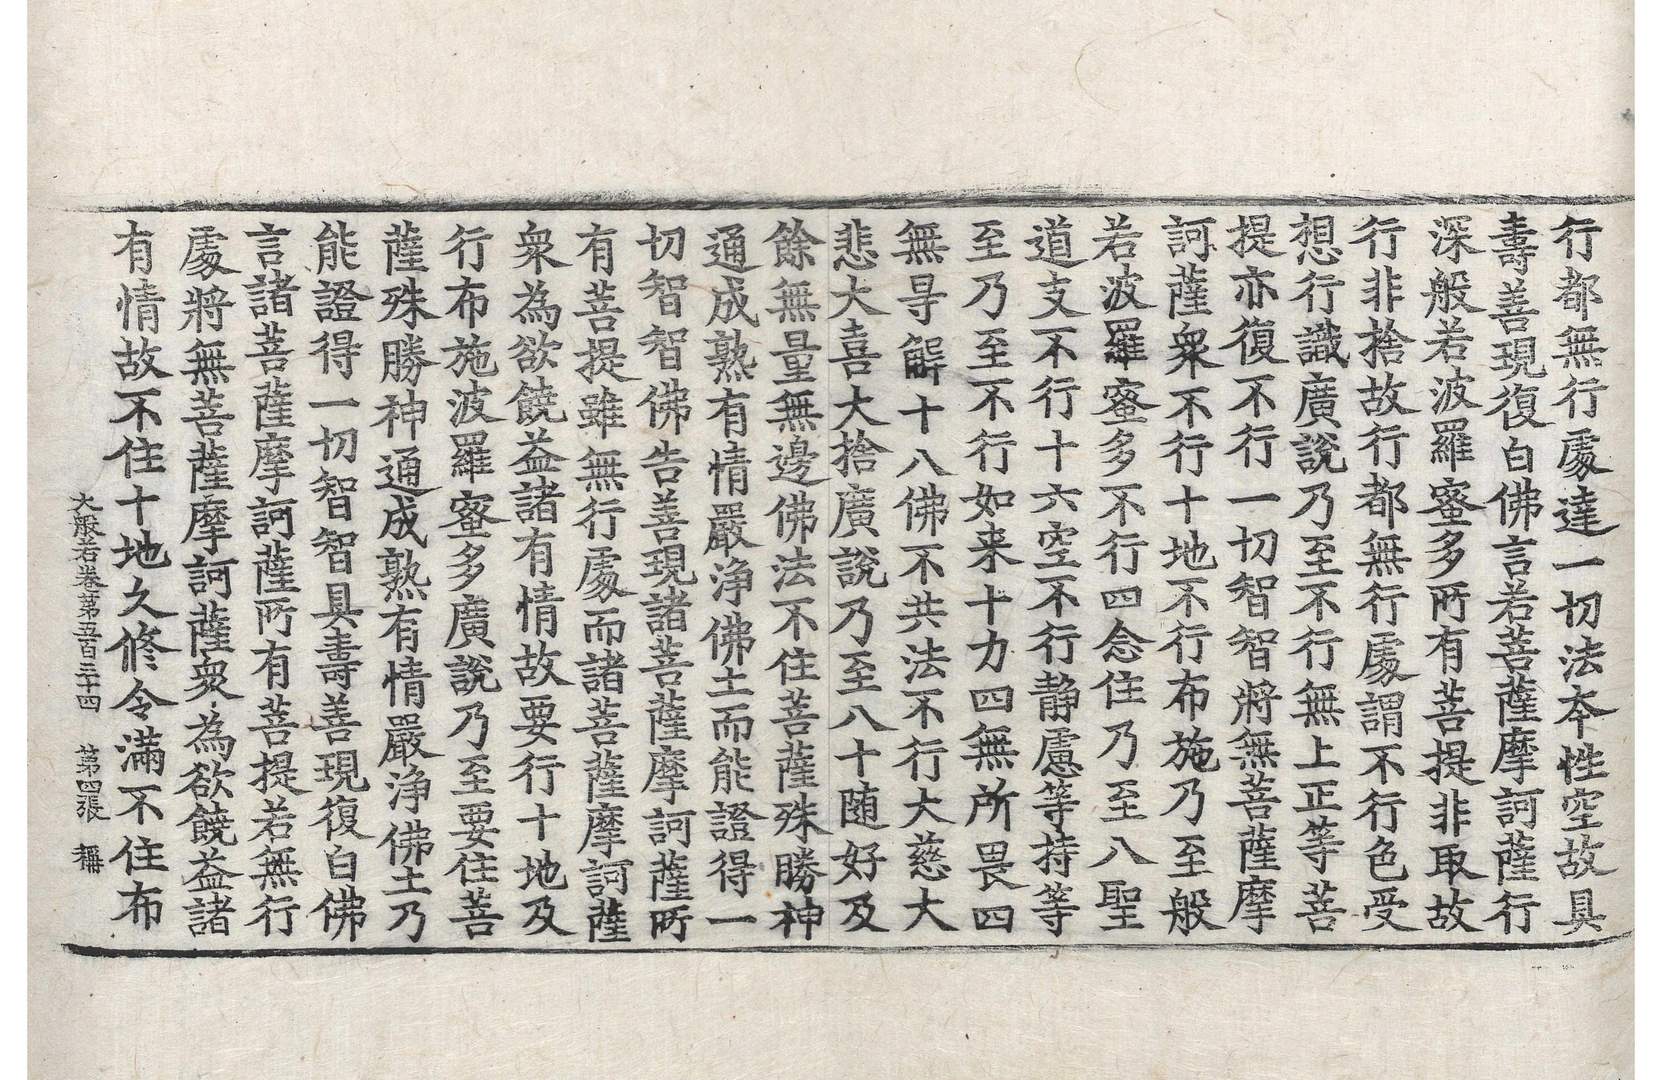 行都無行處達一切法本性空故具
壽善現復白佛言若菩薩摩訶薩行
深般若波羅蜜多所有菩提非取故
行非捨故行都無行處謂不行色受
想行識廣說乃至不行無上正等菩
提亦復不行一切智智將無菩薩摩
訶薩衆不行十地不行布施乃至般
若波羅蜜多不行四念住乃至八聖
道支不行十六空不行静慮等持等
至乃至不行如来十力四無所畏四
無㝵解十八佛不共法不行大慈大
悲大喜大捨廣說乃至八十随好及
餘無量無邊佛法不住菩薩殊勝神
通成熟有情嚴浄佛土而能證得一
切智智佛告善現諸菩薩摩訶薩所
有菩提雖無行處而諸菩薩摩訶薩
衆為欲饒益諸有情故要行十地及
行布施波羅蜜多廣說乃至要住菩
薩殊勝神通成熟有情嚴浄佛土乃
能證得一切智智具壽善現復白佛
言諸菩薩摩訶薩所有菩提若無行
處將無菩薩摩訶薩衆為欲饒益諸
有情故不住十地久修令滿不住布
大般若卷第五百三十四 第四張 稱